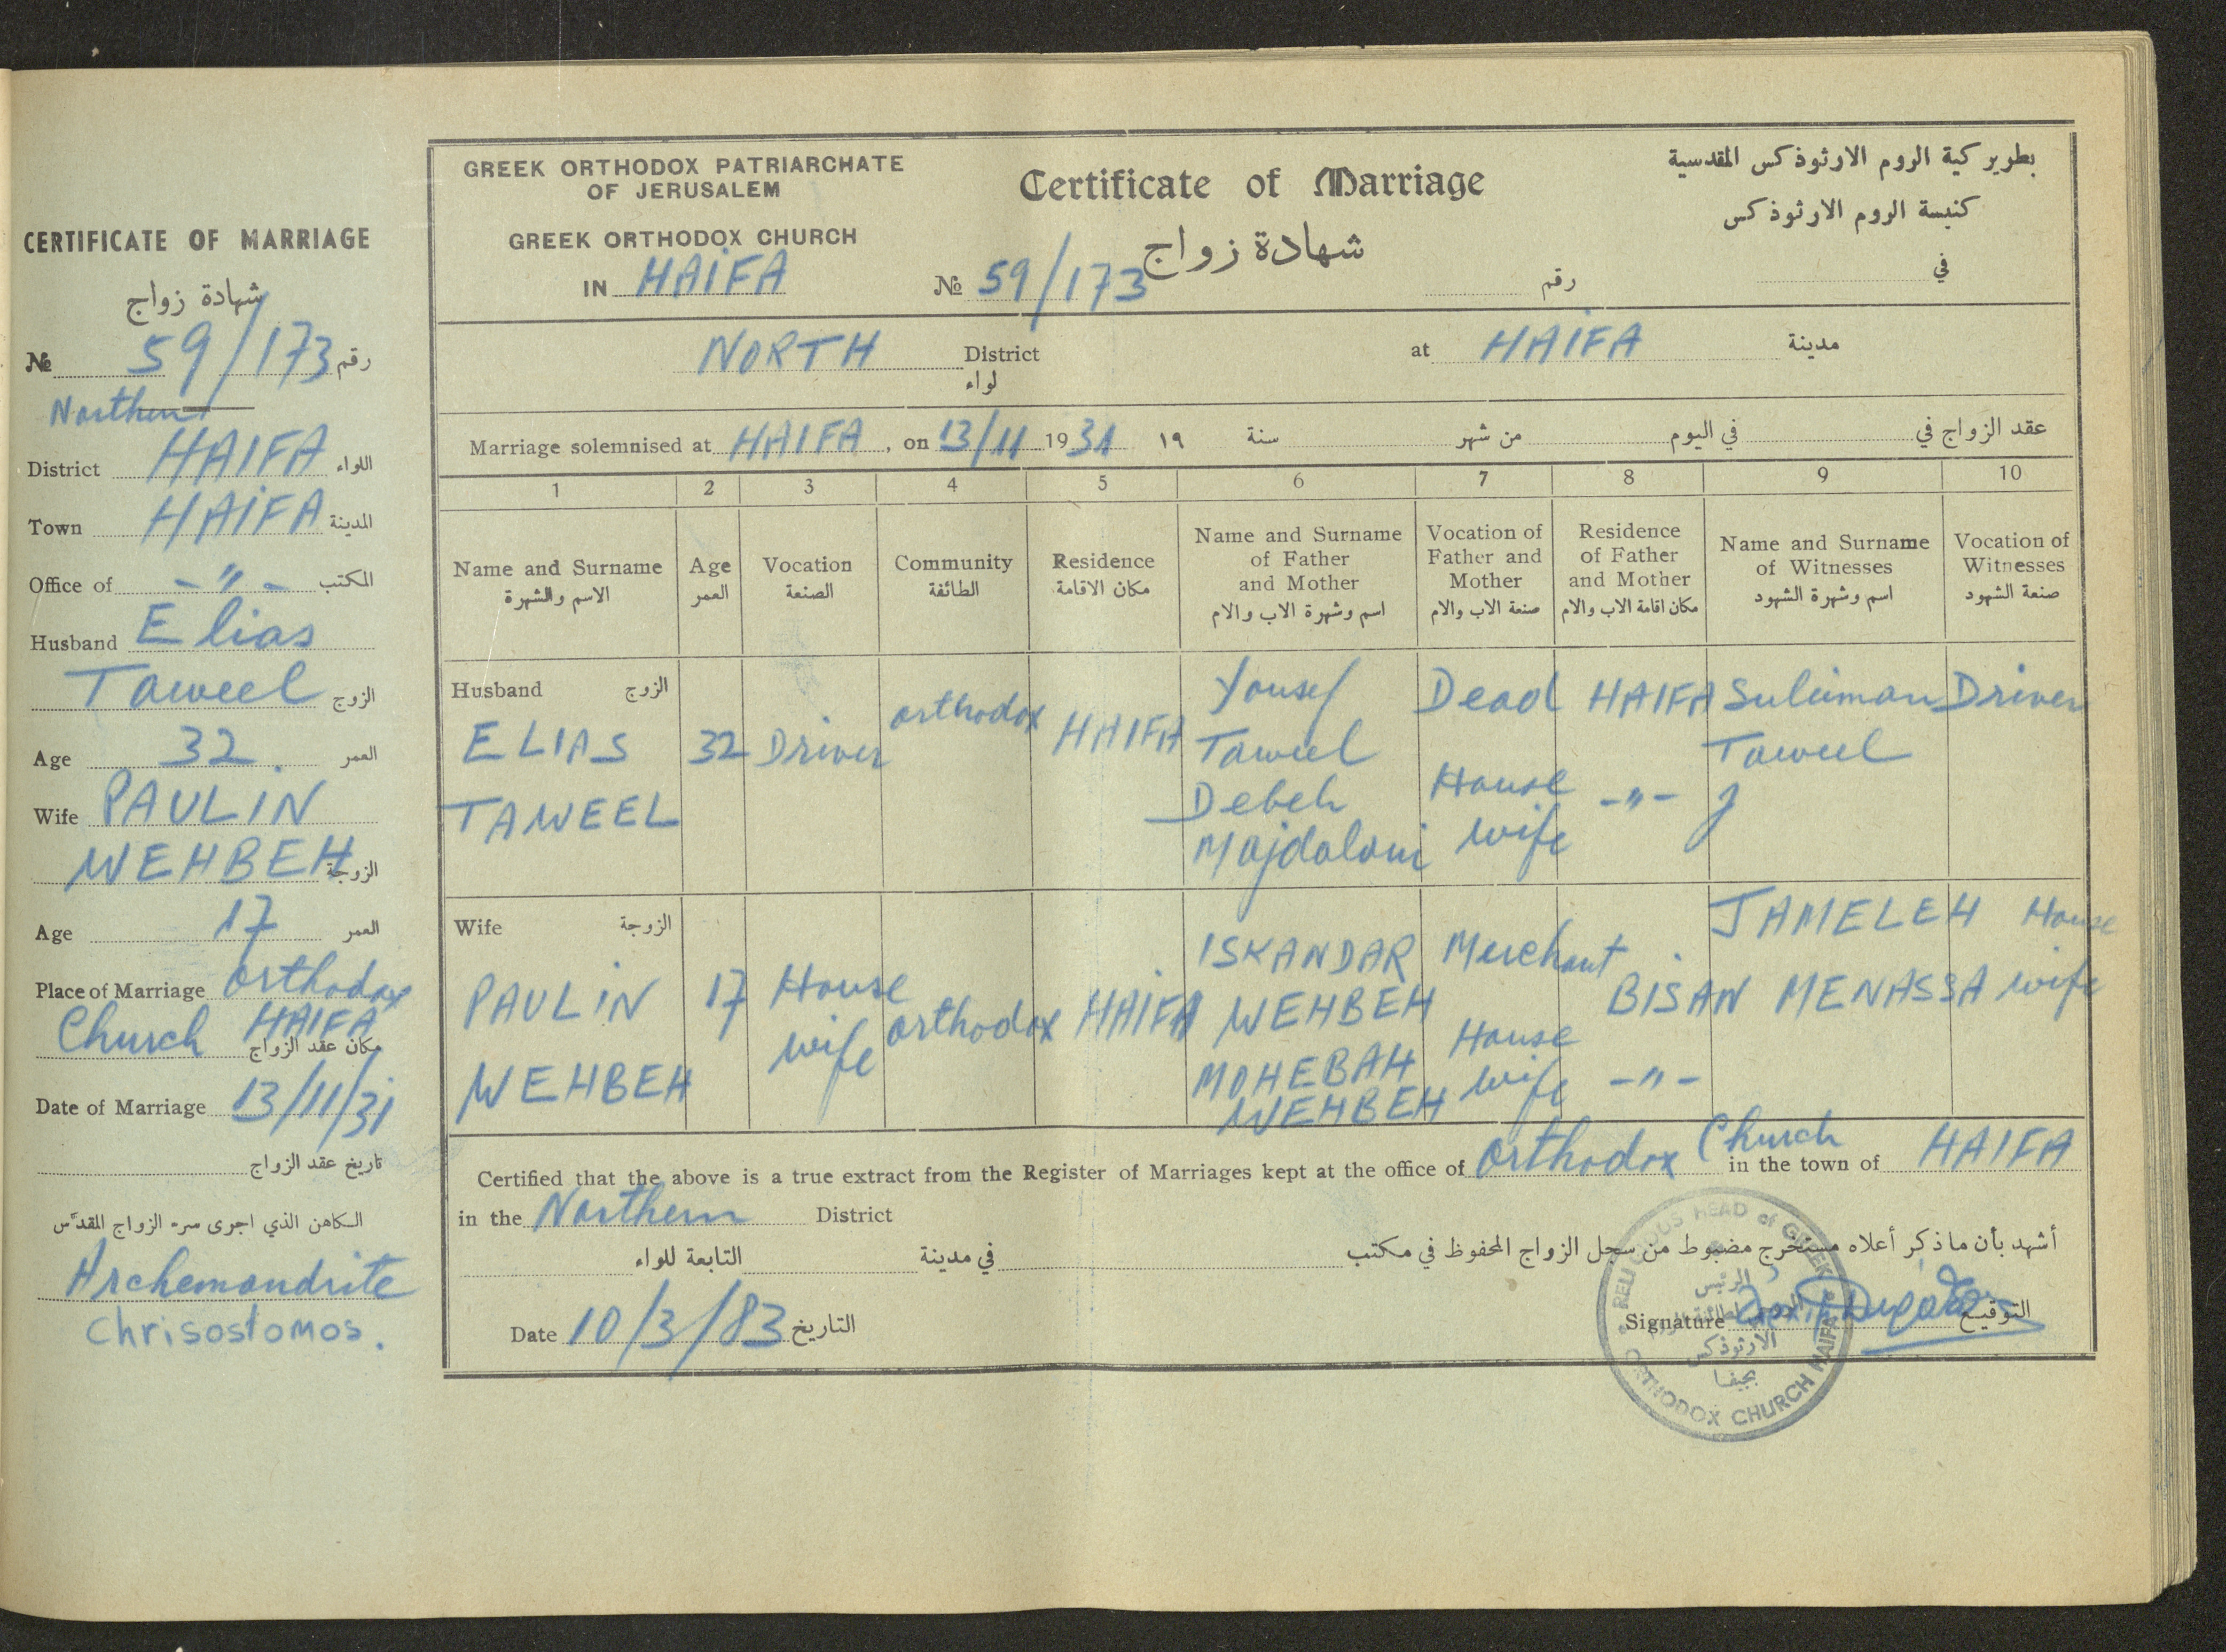 CERTIFICATE OF MARRIAGE
شهادة زواج
№ 59/173 رقم
Northern
District HAIFA اللواء
Town HAIFA المدينة
Office of -"- المكتب
Husband Elias
Taweel الزوج
Age 32. العمر
Wife PAULIN
WEHBEH الزوجة
Age 17 العمر
Place of Marriage orthodox
Church HAIFA مكان عقد الزواج
Date of Marriage 13/11/31
تاريخ عقد الزواج
الكاهن الذي اجرى سر الزواج المقدّس
Archemandrite
Chrisostomos.
GREEK ORTHODOX PATRIARCHATE
OF JERUSALEM
GREEK ORTHODOX CHURCH
IN HAIFA
Certificate of Marriage
شهادة زواج
№ 59/173 رقم
بطريركية الروم الارثوذكس المقدسية
كنيسة الروم الارثوذكس
في
NORTH District at HAIFA مدينة
لواء
Marriage solemnised at HAIFA, on 13/11 1931 ١٩ سنة من شهر في اليوم عقد الزواج في
1 2 3 4 5 6 7 8 9 10
Name and Surname
الاسم والشهرة
Age
العمر
Vocation
الصنعة
Community
الطائفة
Residence
مكان الاقامة
Name and Surname
of Father
and Mother
اسم وشهرة الاب والام
Vocation of
Father and
Mother
صنعة الاب والام
Residence
of Father
and Mother
مكان اقامة الاب والام
Name and Surname
of Witnesses
اسم وشهرة الشهود
Vocation of
Witnesses
صنعة الشهود
Husband الزوج
ELIAS
TAWEEL
32
Driver
orthodox
HAIFA
Yousef
Taweel
Debeh
Majdalani
Dead
House
wife
HAIFA
-"-
Suleiman
Taweel
Driver
Wife الزوجة
PAULIN
WEHBEH
17
House
wife
orthodox
HAIFA
ISKANDAR
WEHBEH
MOHEBAH
WEHBEH
Merchant
House
wife
BISAN
-"-
JAMELEH
MENASSA
House
wife
Certified that the above is a true extract from the Register of Marriages kept at the office of Orthodox Church in the town of HAIFA
in the Northern District
أشهد بأن ما ذكر أعلاه مستخرج مضبوط من سجل الزواج المحفوظ في مكتب
في مدينة التابعة للواء
Date 10/3/83 التاريخ
Signature التوقيع
RELIGIOUS HEAD of GREEK
ORTHODOX CHURCH HAIFA
الرئيس
الارثوذكس
بحيفا